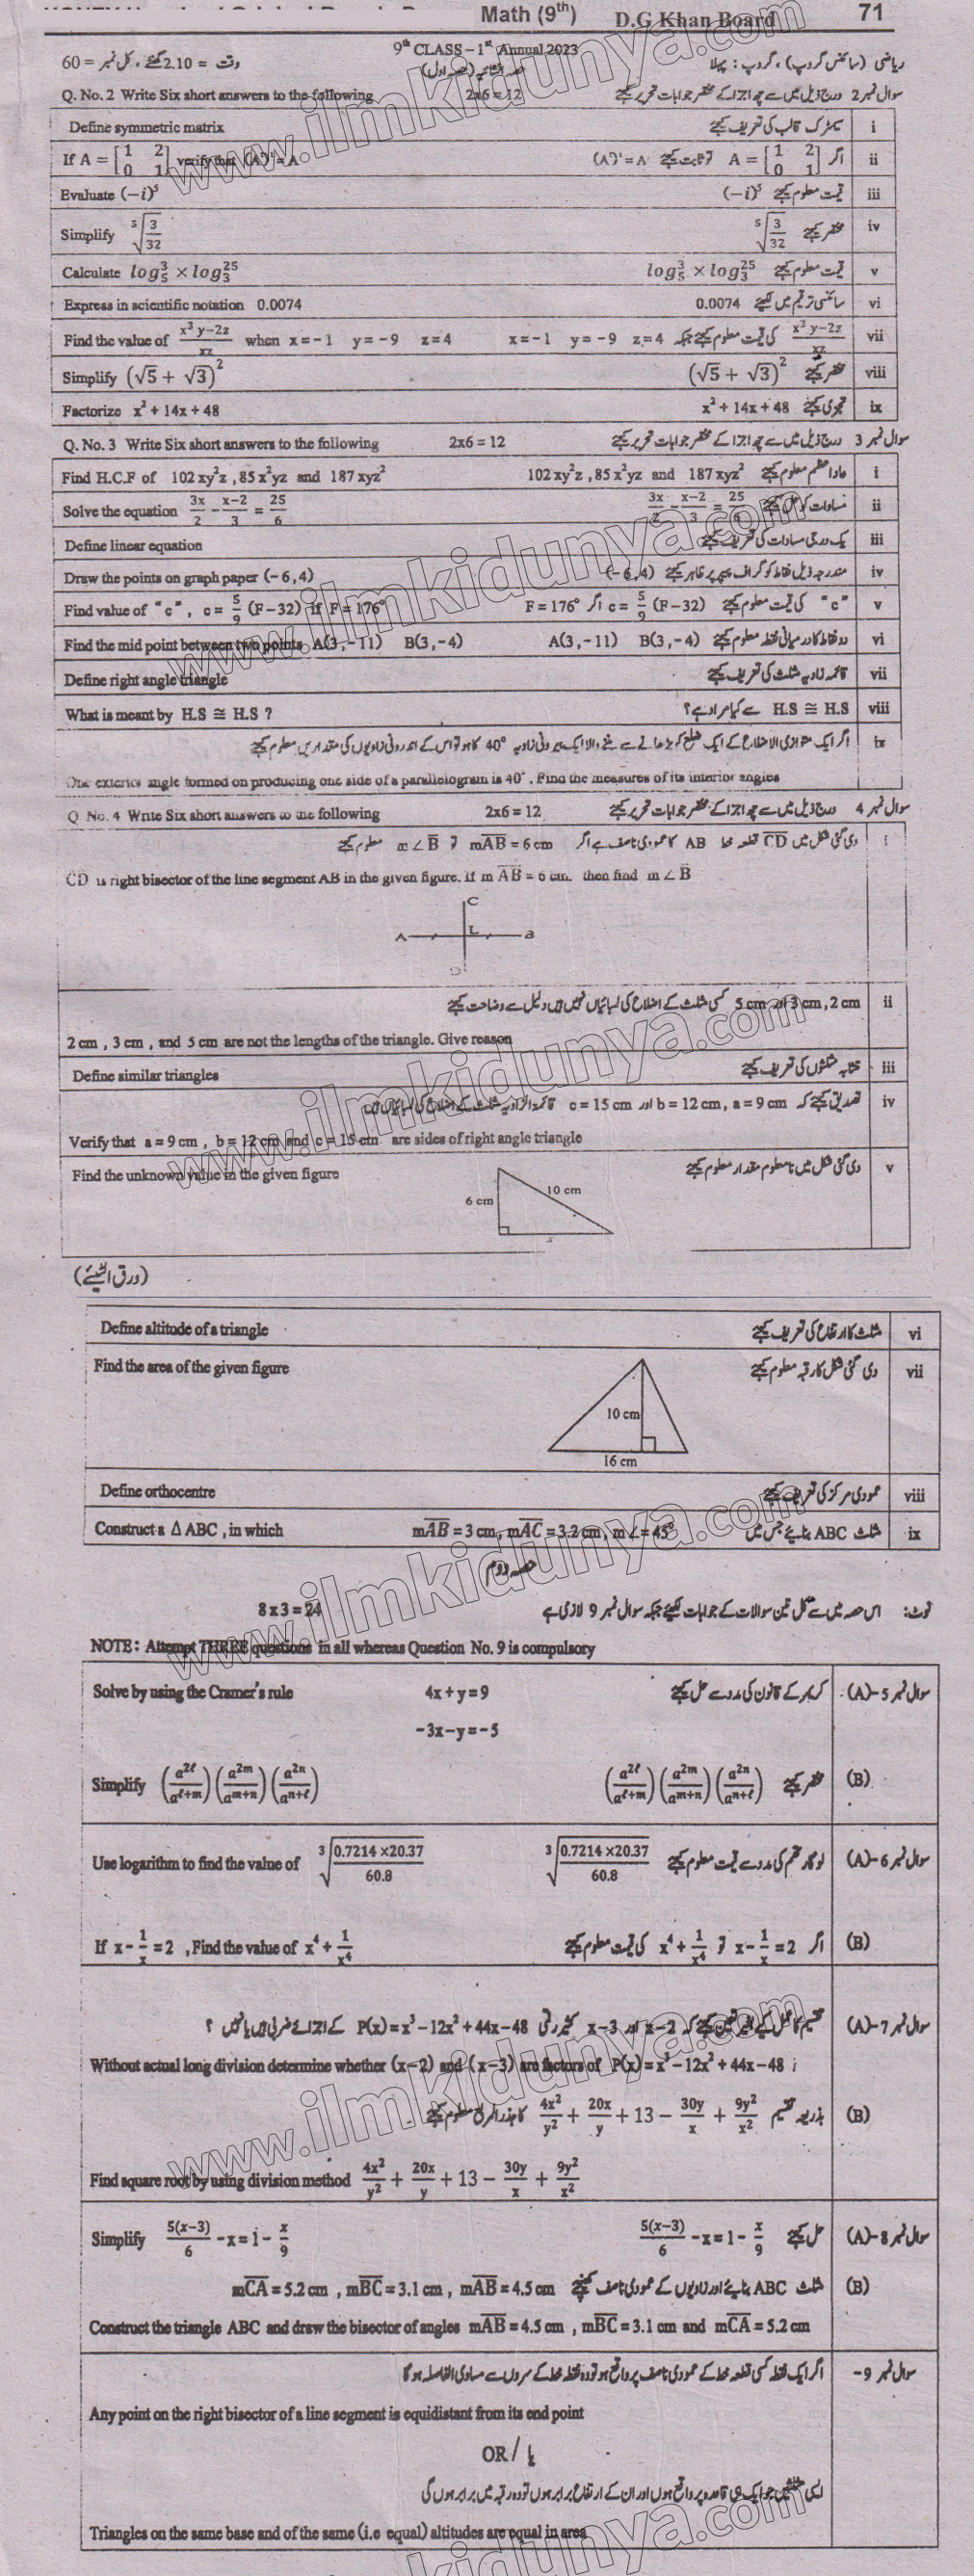 Math (9th) D.G Khan Board 71
9th CLASS – 1st Annual 2023
ریاضی (سائنس گروپ) ، گروپ : پہلا (حصہ اول) وقت = 2.10 گھنٹے ، کل نمبر = 60
Q. No. 2 Write Six short answers to the following 2x6 = 12 سوال نمبر 2 درج ذیل میں سے چھ اجزا کے مختصر جوابات تحریر کیجئے
Define symmetric matrix سیمٹرک قالب کی تعریف کیجئے i
If A = [1 2 0 1] verify that (A')' = A اگر A = [1 2 0 1] تو ثابت کیجئے (A')' = A ii
Evaluate (−i)⁵ قیمت معلوم کیجئے (−i)⁵ iii
Simplify ⁵√(3/32) مختصر کیجئے ⁵√(3/32) iv
Calculate log₅³ × log₃²⁵ قیمت معلوم کیجئے log₅³ × log₃²⁵ v
Express in scientific notation 0.0074 سائنسی ترقیم میں لکھئے 0.0074 vi
Find the value of (x³y−2z)/xz when x = −1 y = −9 z = 4 (x³y−2z)/xz کی قیمت معلوم کیجئے جبکہ x = −1 y = −9 z = 4 vii
Simplify (√5 + √3)² مختصر کیجئے (√5 + √3)² viii
Factorize x² + 14x + 48 تجزی کیجئے x² + 14x + 48 ix
Q. No. 3 Write Six short answers to the following 2x6 = 12 سوال نمبر 3 درج ذیل میں سے چھ اجزا کے مختصر جوابات تحریر کیجئے
Find H.C.F of 102 xy²z , 85 x²yz and 187 xyz² عاداعظم معلوم کیجئے 102 xy²z , 85 x²yz and 187 xyz² i
Solve the equation 3x/2 − (x−2)/3 = 25/6 مساوات کو حل کیجئے 3x/2 − (x−2)/3 = 25/6 ii
Define linear equation یک درجی مساوات کی تعریف کیجئے iii
Draw the points on graph paper (− 6 , 4) مندرجہ ذیل نقاط کو گراف پیپر پر ظاہر کیجئے (− 6 , 4) iv
Find value of "c" , c = 5/9 (F−32) if F = 176° "c" کی قیمت معلوم کیجئے c = 5/9 (F−32) اگر F = 176° v
Find the mid point between two points A(3 , −11) B(3 , −4) دو نقاط کا درمیانی نقطہ معلوم کیجئے A(3 , −11) B(3 , −4) vi
Define right angle triangle قائمہ زاویہ مثلث کی تعریف کیجئے vii
What is meant by H.S ≅ H.S ? H.S ≅ H.S سے کیا مراد ہے؟ viii
اگر ایک متوازی الاضلاع کے ایک ضلع کو بڑھانے سے بننے والا ایک بیرونی زاویہ 40° کا ہو تو اس کے اندرونی زاویوں کی مقداریں معلوم کیجئے ix
One exterior angle formed on producing one side of a parallelogram is 40° . Find the measures of its interior angles
Q. No. 4 Write Six short answers to the following 2x6 = 12 سوال نمبر 4 درج ذیل میں سے چھ اجزا کے مختصر جوابات تحریر کیجئے
دی گئی شکل میں CD قطعہ خط AB کا عمودی ناصف ہے اگر mAB = 6 cm تو m∠B معلوم کیجئے i
CD is right bisector of the line segment AB in the given figure. If m AB = 6 cm. then find m∠B
C
A L B
D
2 cm , 3 cm اور 5 cm کسی مثلث کے اضلاع کی لمبائیاں نہیں ہیں دلیل سے وضاحت کیجئے ii
2 cm , 3 cm , and 5 cm are not the lengths of the triangle. Give reason
Define similar triangles متشابہ مثلثوں کی تعریف کیجئے iii
تصدیق کیجئے کہ a = 9 cm , b = 12 cm اور c = 15 cm قائمۃ الزاویہ مثلث کے اضلاع کی لمبائیاں ہیں iv
Verify that a = 9 cm , b = 12 cm and c = 15 cm are sides of right angle triangle
Find the unknown value in the given figure دی گئی شکل میں نامعلوم مقدار معلوم کیجئے v
6 cm 10 cm
x
(ورق الٹیئے)
Define altitude of a triangle مثلث کا ارتفاع کی تعریف کیجئے vi
Find the area of the given figure دی گئی شکل کا رقبہ معلوم کیجئے vii
10 cm
16 cm
Define orthocentre عمودی مرکز کی تعریف کیجئے viii
Construct a Δ ABC , in which mAB = 3 cm , mAC = 3.2 cm , m∠ = 45° مثلث ABC بنائیے جس میں ix
حصہ دوم
نوٹ: اس حصہ میں سے کل تین سوالات کے جوابات لکھیئے جبکہ سوال نمبر 9 لازمی ہے 8 x 3 = 24
NOTE : Attempt THREE questions in all whereas Question No. 9 is compulsory
Solve by using the Cramer's rule 4x + y = 9 کریمر کے قانون کی مدد سے حل کیجئے سوال نمبر 5-(A)
−3x−y = −5
Simplify (a^2ℓ/a^ℓ+m) (a^2m/a^m+n) (a^2n/a^n+ℓ) مختصر کیجئے (a^2ℓ/a^ℓ+m) (a^2m/a^m+n) (a^2n/a^n+ℓ) (B)
Use logarithm to find the value of ³√(0.7214 ×20.37/60.8) لوگارتھم کی مدد سے قیمت معلوم کیجئے ³√(0.7214 ×20.37/60.8) سوال نمبر 6-(A)
If x − 1/x = 2 , Find the value of x⁴ + 1/x⁴ اگر x − 1/x = 2 تو x⁴ + 1/x⁴ کی قیمت معلوم کیجئے (B)
تقسیم کا عمل کیے بغیر تعین کیجئے کہ x−2 اور x−3 کثیر رقمی P(x) = x³ − 12x² + 44x − 48 کے اجزائے ضربی ہیں یا نہیں ؟ سوال نمبر 7-(A)
Without actual long division determine whether (x−2) and (x−3) are factors of P(x) = x³ − 12x² + 44x − 48
بذریعہ تقسیم 4x²/y² + 20x/y + 13 − 30y/x + 9y²/x² کا جذر المربع معلوم کیجئے (B)
Find square root by using division method 4x²/y² + 20x/y + 13 − 30y/x + 9y²/x²
Simplify 5(x−3)/6 − x = 1 − x/9 حل کیجئے 5(x−3)/6 − x = 1 − x/9 سوال نمبر 8-(A)
مثلث ABC بنائیے اور زاویوں کے عمودی ناصف کھینچئے mAB = 4.5 cm , mBC = 3.1 cm , mCA = 5.2 cm (B)
Construct the triangle ABC and draw the bisector of angles mAB = 4.5 cm , mBC = 3.1 cm and mCA = 5.2 cm
اگر ایک نقطہ کسی قطعہ خط کے عمودی ناصف پر واقع ہو تو وہ نقطہ خط کے سروں سے مساوی الفاصلہ ہو گا سوال نمبر 9-
Any point on the right bisector of a line segment is equidistant from its end point
OR / یا
ایسی مثلثیں جو ایک ہی قاعدہ پر واقع ہوں اور ان کے ارتفاع برابر ہوں تو وہ رقبہ میں برابر ہوں گی
Triangles on the same base and of the same (i.e equal) altitudes are equal in area
www.ilmkidunya.com
www.ilmkidunya.com
www.ilmkidunya.com
www.ilmkidunya.com
www.ilmkidunya.com